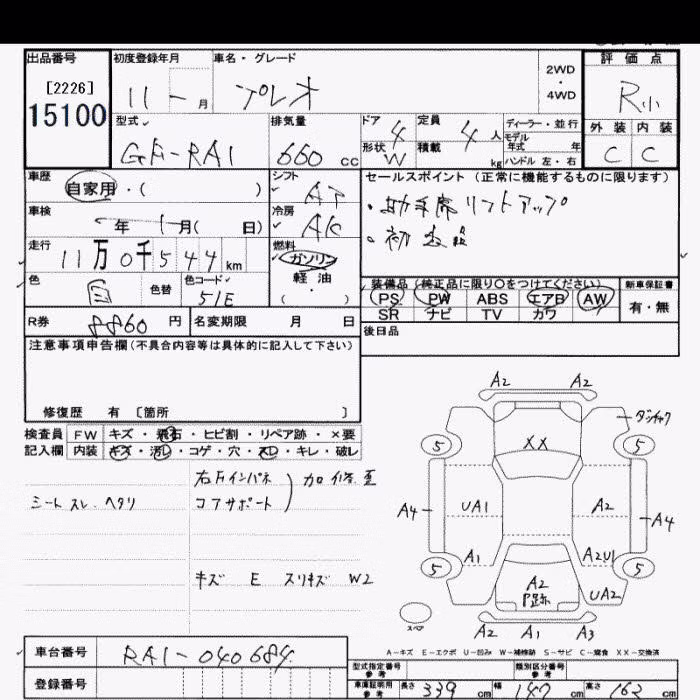 出品番号
[2226]
15100
初度登録年月
11 - 月
車名・グレード
プレオ
2WD
・
4WD
評価点
R小
型式
GF-RA1
排気量
660 cc
ドア 4
定員 4 人
ディーラー・並行
モデル
年式 年
外装 内装
C C
形状 W
積載 kg
ハンドル 左・右
車歴
自家用・( )
シフト
AT
セールスポイント (正常に機能するものに限ります)
・助手席リフトアップ
車検
年 1月( 日)
冷房
AC
走行
11万0千544km
燃料
ガソリン
軽油
( ・ )
色
白
色替
色コード
51E
装備品 (純正品に限り○をつけてください)
PS PW ABS エアB AW
SR ナビ TV カワ
新車保証書
有・無
R券 8860 円
名変期限 月 日
後日品
注意事項申告欄(不具合内容等は具体的に記入して下さい)
修復歴 有 [箇所 ]
検査員 FW キズ・飛石・ヒビ割・リペア跡・×要
記入欄 内装 キズ・汚レ・コゲ・穴・スレ・キレ・破レ
右Fインパネ
コアサポート
シート スレ・ヘタリ
キズ E スリキズ W2
A2 A2
5 5
XX
A4 UA1 A2 A4
A1 A2U1
5 5
A2
UA2
スペア
A2 A1 A3
A-キズ E-エクボ U-凹み W-補修跡 S-サビ C-腐食 XX-交換済
車台番号 RA1-040684
登録番号
型式指定番号
参考
類別区分番号
参考
車庫証明用
参考
長さ 339 cm 幅 147 cm 高さ 162 cm